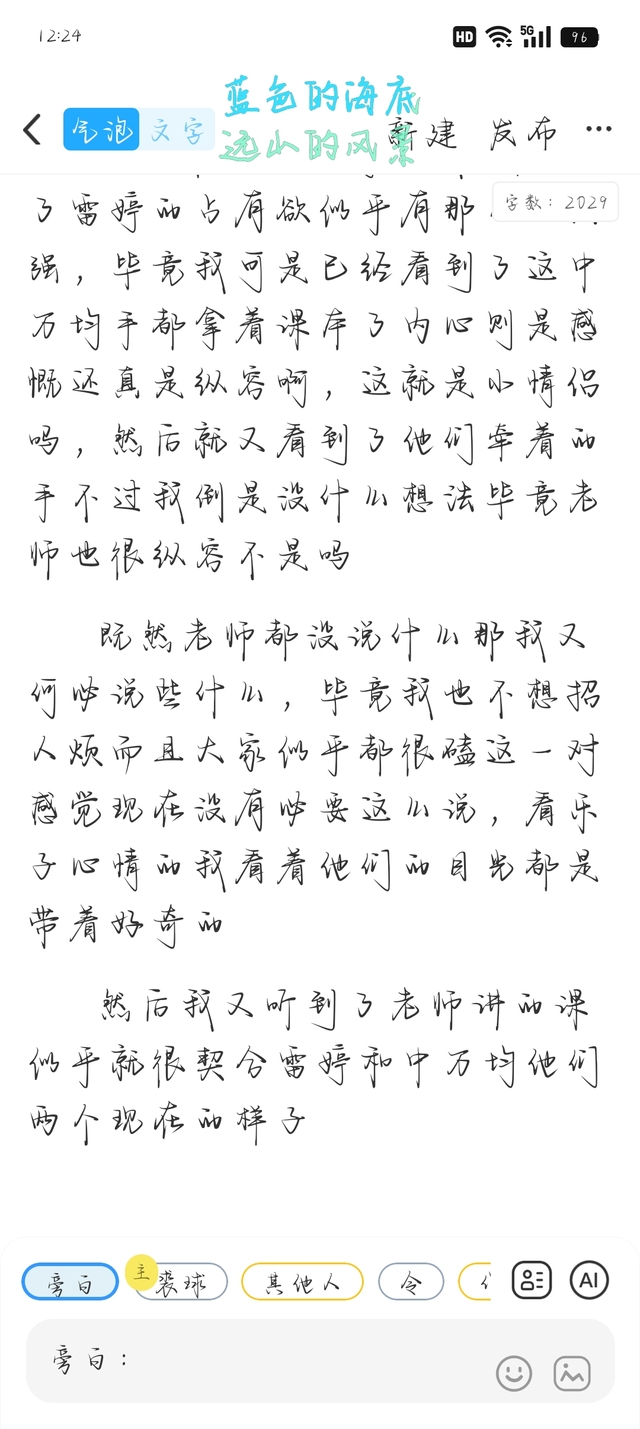 12:24 HD 5G 96
蓝色的海底
气泡 文字 新建 发布
远山的风景
字数：2029
了雷婷的占有欲似乎有那
强，毕竟我可是已经看到了这中
万均手都拿着课本了内心则是感
慨还真是纵容啊，这就是小情侣
吗，然后就又看到了他们牵着的
手不过我倒是没什么想法毕竟老
师也很纵容不是吗
既然老师都没说什么那我又
何必说些什么，毕竟我也不想招
人烦而且大家似乎都很磕这一对
感觉现在没有必要这么说，看乐
子心情的我看着他们的目光都是
带着好奇的
然后我又听到了老师讲的课
似乎就很契合雷婷和中万均他们
两个现在的样子
旁白 主 裘球 其他人 令 AI
旁白：